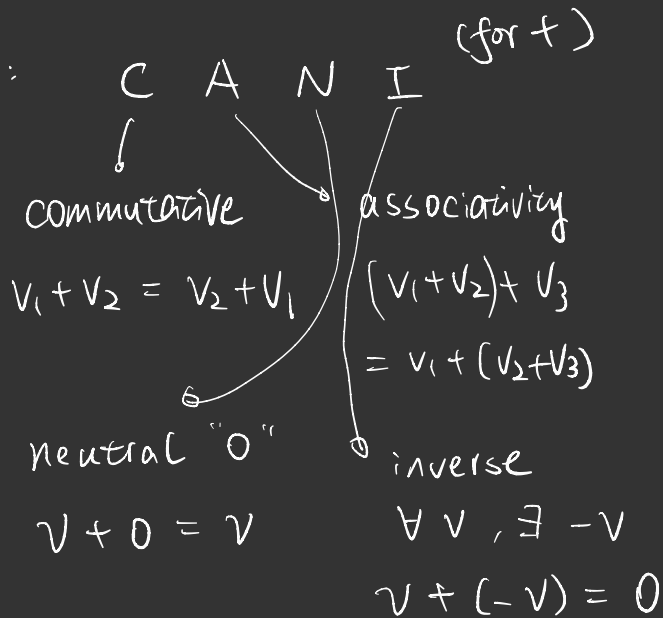 (for +)
: C A N I
commutative
v₁ + v₂ = v₂ + v₁
associativity
(v₁+v₂)+ v₃
= v₁ + (v₂+v₃)
neutral "0"
v + 0 = v
inverse
∀ v , ∃ -v
v + (-v) = 0